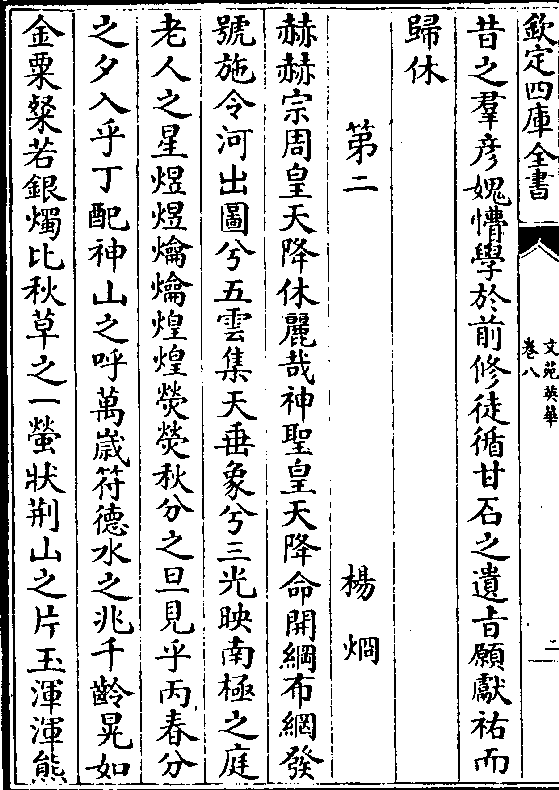 欽定四庫全書
文苑英華
卷八
二
昔之羣彥媿懵學於前修徒循甘石之遺㫖願獻祐而
歸休
第二 楊烱
赫赫宗周皇天降休麗哉神聖皇天降命開綱布網發
號施令河出圖兮五雲集天垂象兮三光映南極之庭
老人之星煜煜爚爚煌煌熒熒秋分之旦見乎丙春分
之夕入乎丁配神山之呼萬歲符德水之兆千齡晃如
金粟粲若銀燭比秋草之一螢狀荆山之片玉渾渾熊